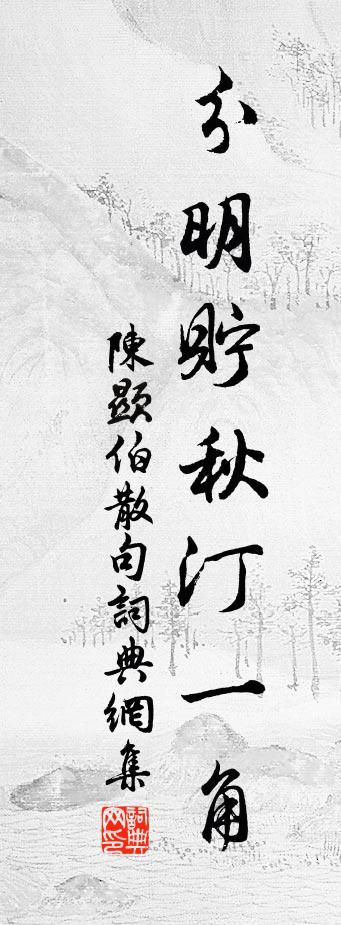 分明貯秋汀一角
陳顥伯散句詞典網集
詞典網印